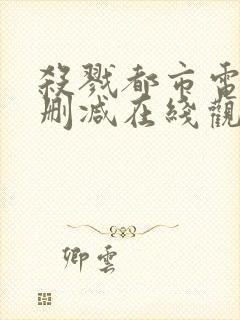 殺戮都市電
刪減在綫觀
卿雲